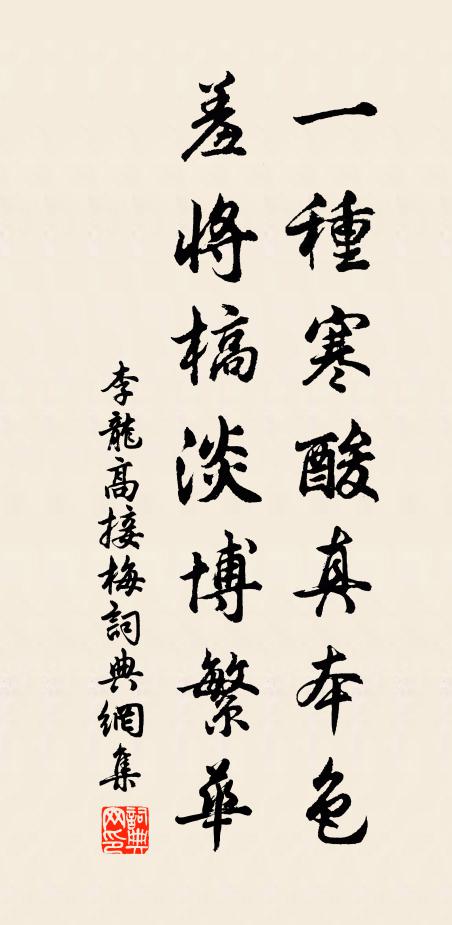 一種寒酸真本色
羞將槁淡博繁華
李龍高接梅詞典網集
詞典網印